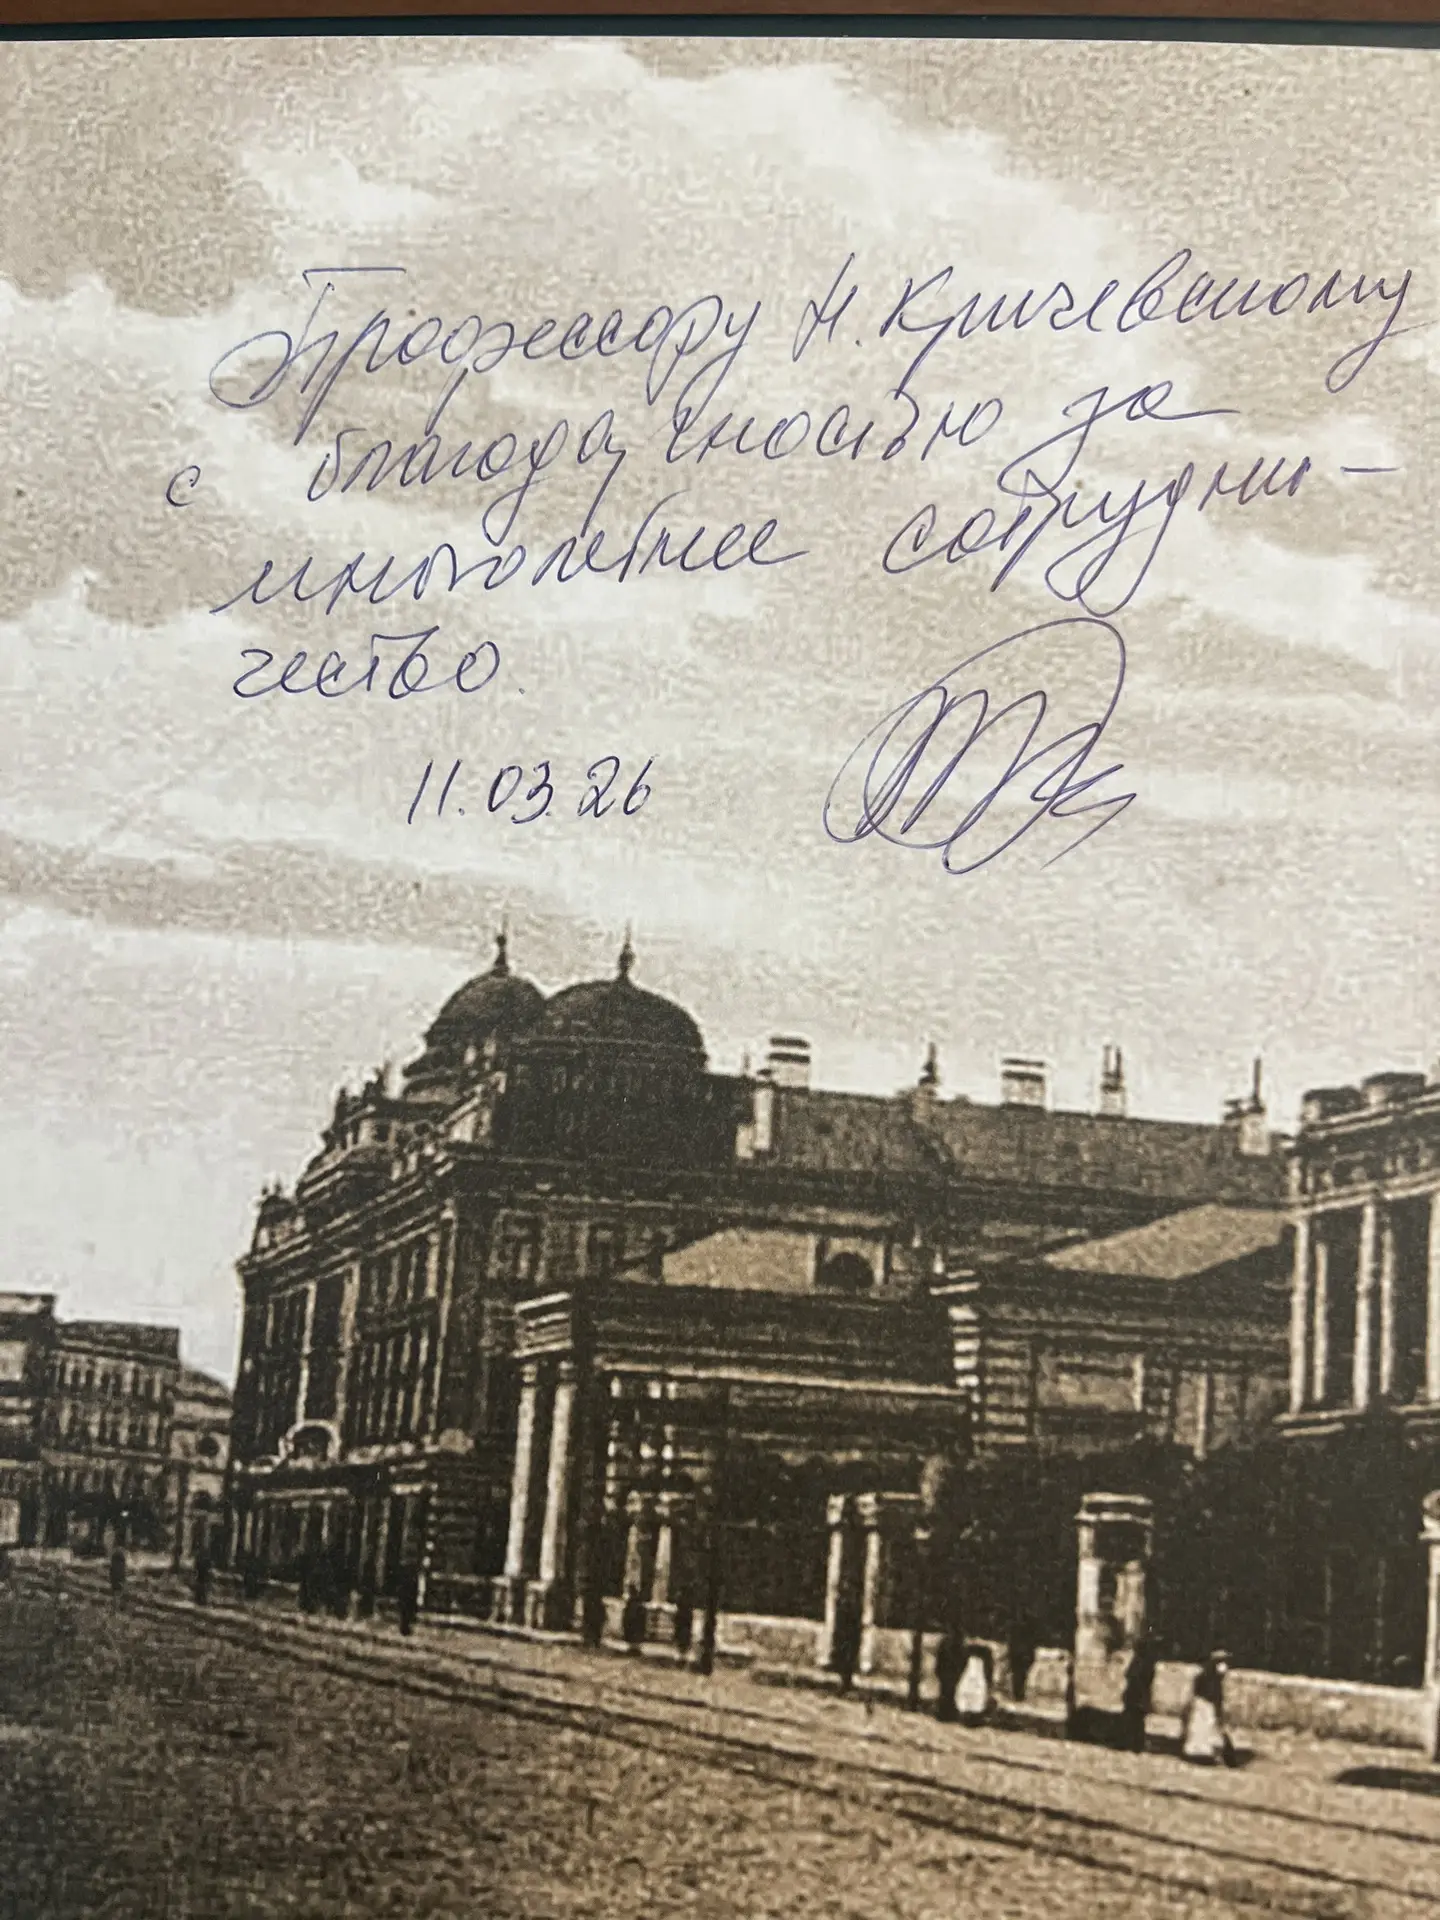 Профессору Н. Кричевскому
с благодарностью за
многолетнее сотрудни-
чество.
11.03.26